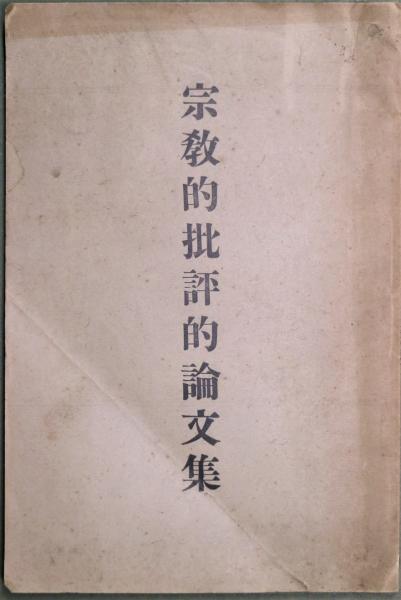 宗教的批評的論文集